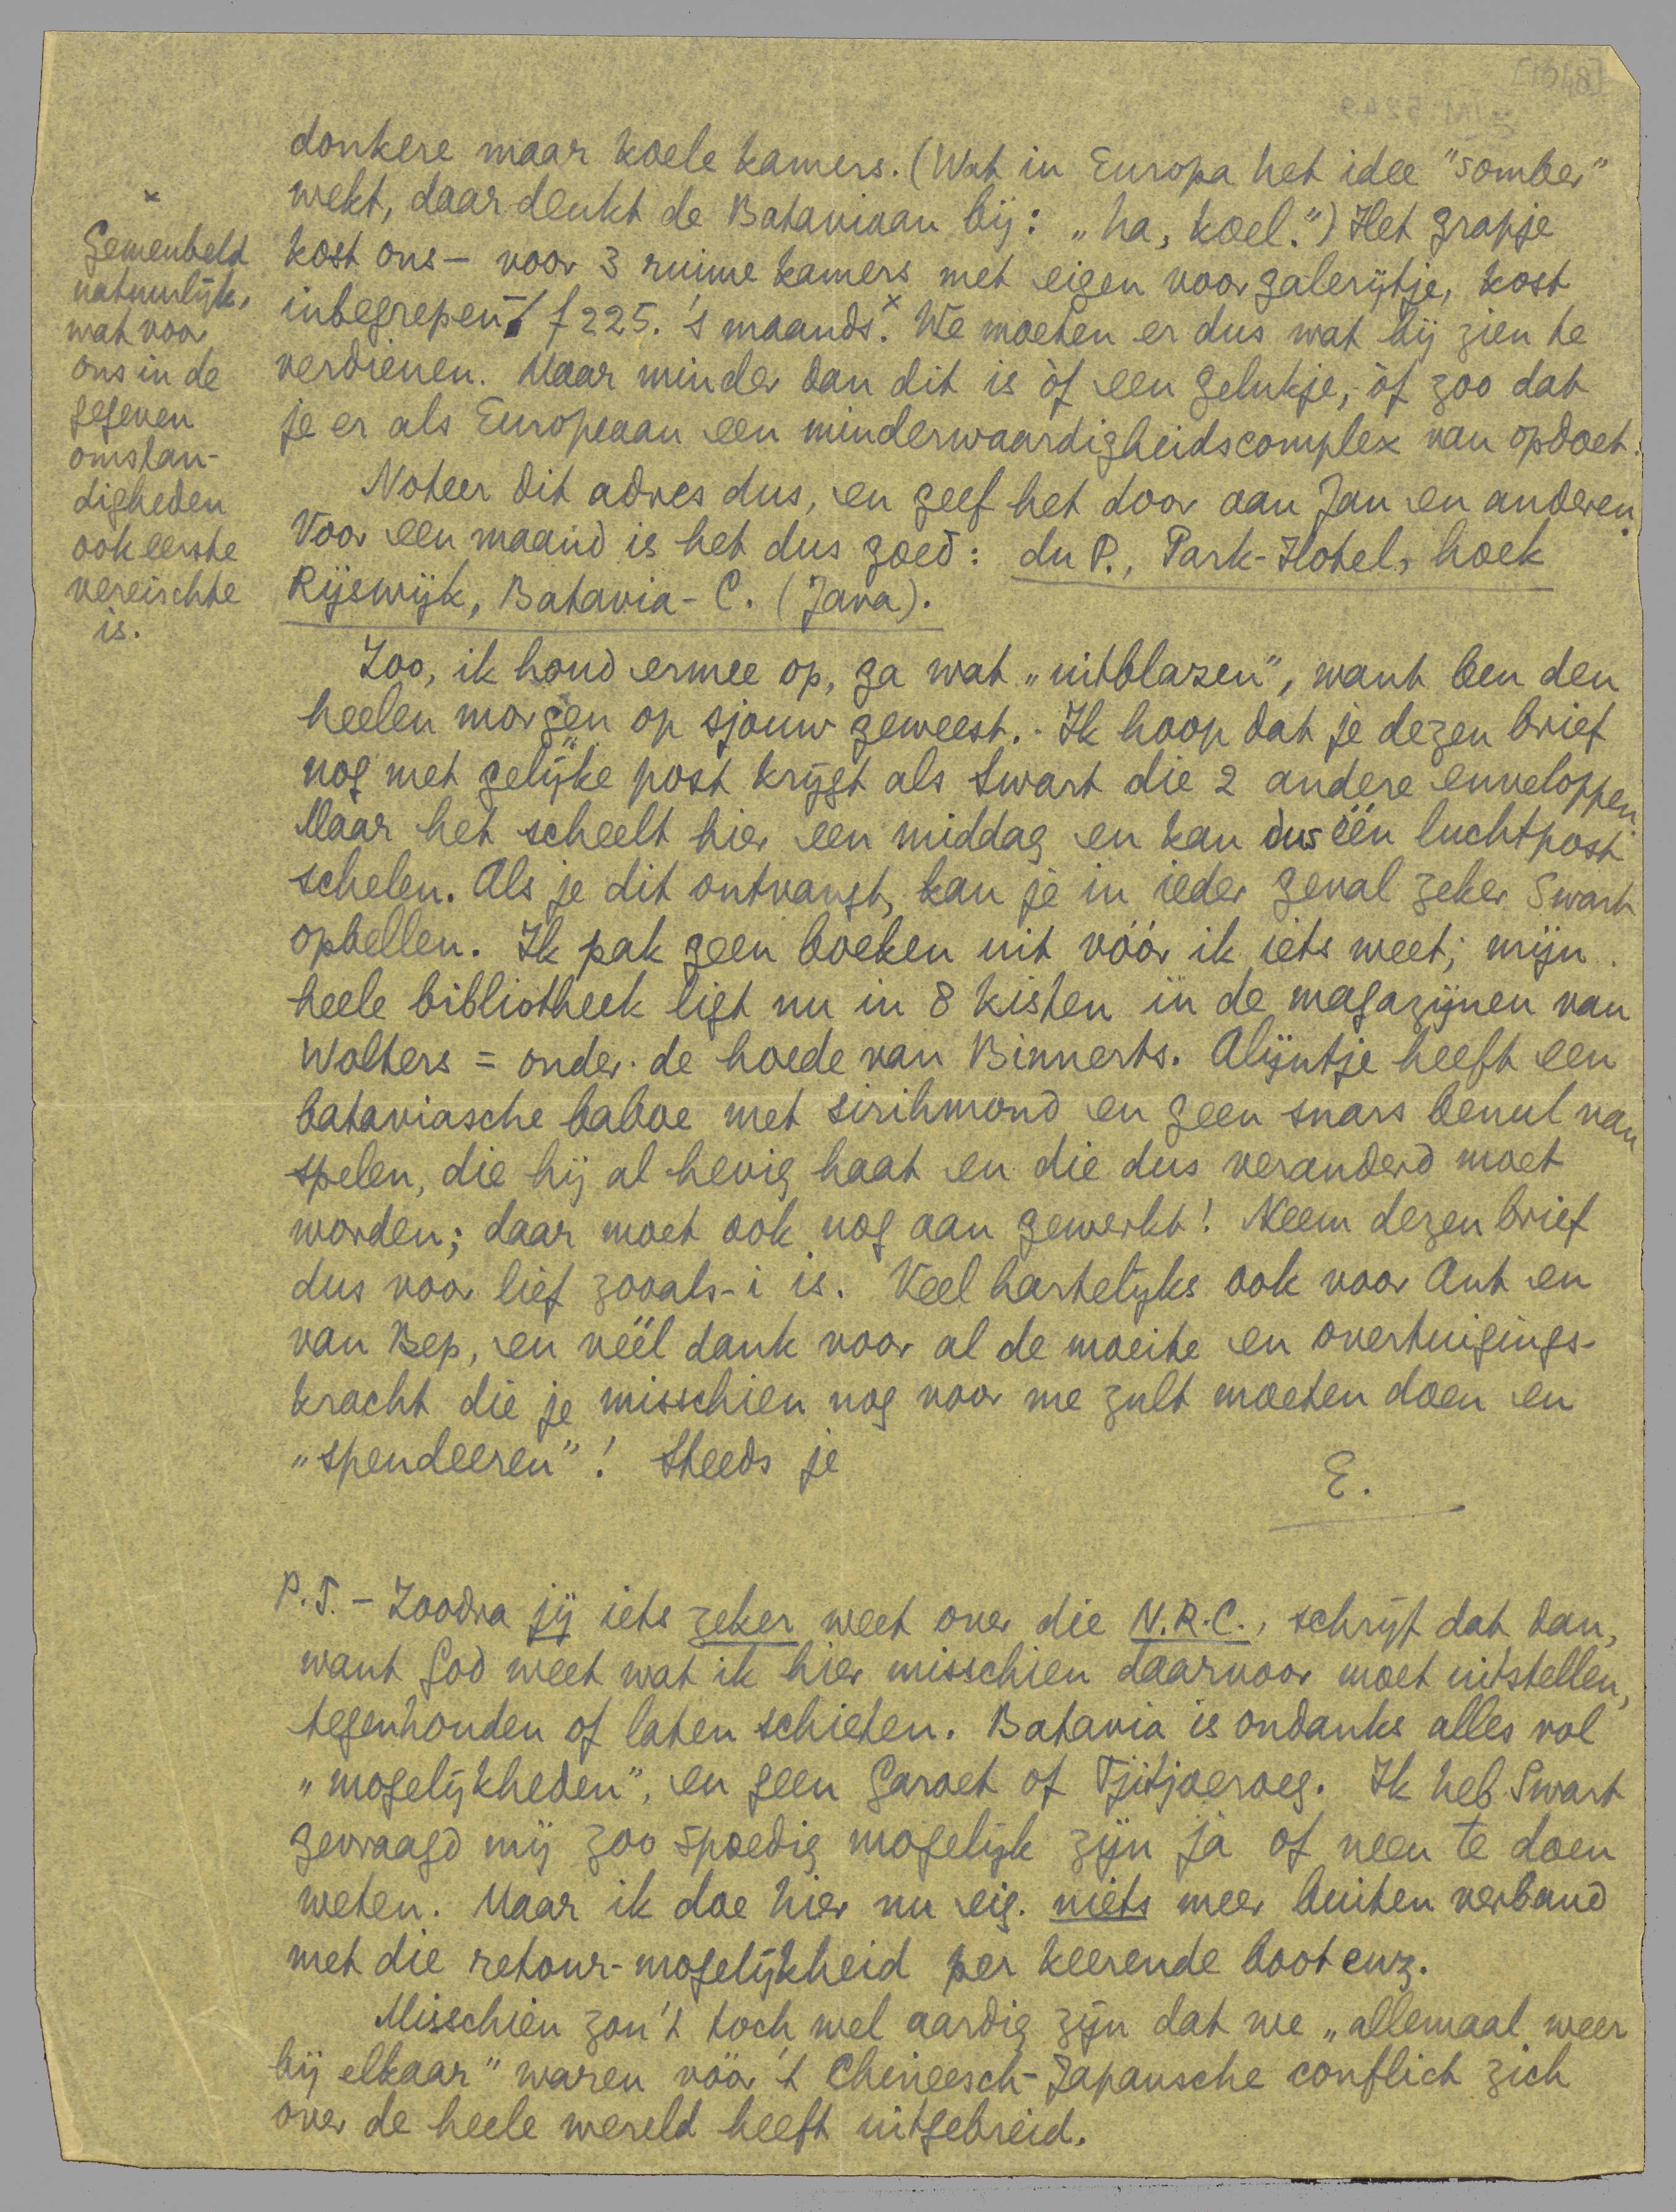 donkere maar koele kamers. (Wat in Europa het idee "somber"
wekt, daar denkt de Bataviaan bij: „ha, koel.") Het grapje
kost ons — voor 3 ruime kamers met eigen voorgalerijtje, kost
inbegrepen — f 225. 's maands.x We moeten er dus wat bij zien te
verdienen. Maar minder dan dit is òf een gelukje, òf zoo dat
je er als Europeaan een minderwaardigheidscomplex van opdoet.
Noteer dit adres dus, en geef het door aan Jan en anderen.
Voor een maand is het dus goed: du P., Park-Hotel, hoek
Rijswijk, Batavia-C. (Java).
Zoo, ik houd ermee op, ga wat „uitblazen", want ben den
heelen morgen op sjouw geweest. - Ik hoop dat je dezen brief
nog met gelijke post krijgt als Swart die 2 andere enveloppen.
Maar het scheelt hier een middag en kan dus één luchtpost
schelen. Als je dit ontvangt, kan je in ieder geval zeker Swart
opbellen. Ik pak geen boeken uit vóór ik iets weet; mijn
heele bibliotheek ligt nu in 8 kisten in de magazijnen van
Wolters = onder de hoede van Binnerts. Alijntje heeft een
bataviasche baboe met sirihmond en geen snars benul van
spelen, die hij al hevig haat en die dus veranderd moet
worden; daar moet ook nog aan gewerkt! Neem dezen brief
dus voor lief zooals-i is. Veel hartelijks ook voor Ant en
van Bep, en véél dank voor al de moeite en overtuigings-
kracht die je misschien nog voor me zult moeten doen en
„spendeeren"! Steeds je
E.
P.S. — Zoodra jij iets zeker weet over die N.R.C., schrijf dat dan,
want God weet wat ik hier misschien daarvoor moet uitstellen,
tegenhouden of laten schieten. Batavia is ondanks alles vol
„mogelijkheden", en geen Garoet of Tjitjoeroeg. Ik heb Swart
gevraagd mij zoo spoedig mogelijk zijn ja of neen te doen
weten. Maar ik doe hier nu eig. niets meer buiten verband
met die retour-mogelijkheid per keerende boot enz.
Misschien zou 't toch wel aardig zijn dat we „allemaal weer
bij elkaar" waren vóór 't Chineesch-Japansche conflict zich
over de heele wereld heeft uitgebreid.
x
Gemeubeld
natuurlijk,
wat voor
ons in de
gegeven
omstan-
digheden
ook eerste
vereischte
is.